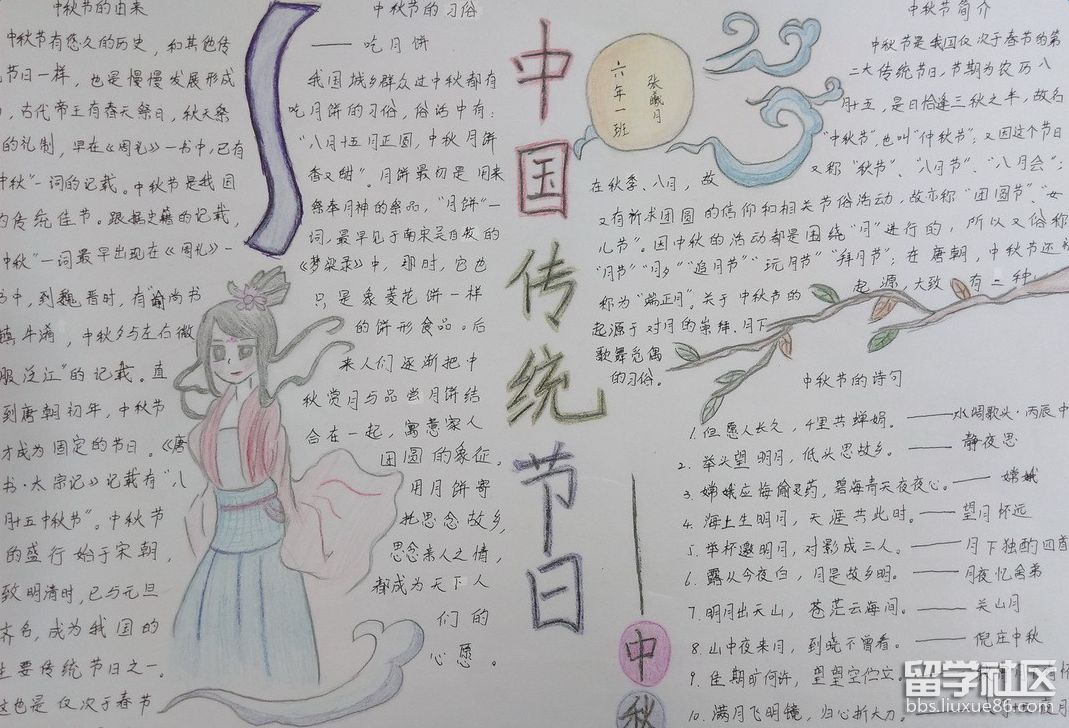 中秋节的由来
中秋节有悠久的历史，和其他传
节日一样，也是慢慢发展形成
古代帝王有春天祭日，秋天祭
的礼制，早在《周礼》一书中，已有
中秋"一词的记载。中秋节是我国
的传统佳节。跟据史籍的记载，
中秋"一词最早出现在《周礼》一
书中，到魏晋时，有"谕尚书
镇牛渚，中秋夕与左右微
服泛江"的记载。直
到唐朝初年，中秋节
才成为固定的节日。《唐
书·太宗记》记载有"八
月十五中秋节"。中秋节
的盛行始于宋朝，
致明清时，已与元旦
齐名，成为我国的
主要传统节日之一。
这也是仅次于春节
中秋节的习俗
——吃月饼
我国城乡群众过中秋都有
吃月饼的习俗，俗话中有：
"八月十五月正圆，中秋月饼
香又甜"。月饼最初是用来
祭奉月神的祭品，"月饼"一
词，最早见于南宋吴自牧的
《梦梁录》中，那时，它也
只是象菱花饼一样
的饼形食品。后
来人们逐渐把中
秋赏月与品尝月饼结
合在一起，寓意家人
团圆的象征。
用月饼寄
托思念故乡，
思念亲人之情，
都成为天下人
们的
心愿。
中国传统节日
——中秋
六年一班
张曦月
中秋节简介
中秋节是我国仅次于春节的第
二大传统节日，节期为农历八
月十五，是日恰逢三秋之半，故名
"中秋节"，也叫"仲秋节"；又因这个节日
在秋季、八月，故又称"秋节"、"八月节"、"八月会"；
又有祈求团圆的信仰和相关节俗活动，故亦称"团圆节"、"女
儿节"。因中秋的活动都是围绕"月"进行的，所以又俗称
"月节""月夕""追月节""玩月节""拜月节"；在唐朝，中秋节还被
称为"端正月"。关于中秋节的起源，大致有三种：
起源于对月的崇拜、月下
歌舞觅偶
的习俗。
中秋节的诗句
1. 但愿人长久，千里共蝉娟。——水调歌头·丙辰中
2. 举头望明月，低头思故乡。——静夜思
3. 嫦娥应悔偷灵药，碧海青天夜夜心。——嫦娥
4. 海上生明月，天涯共此时。——望月怀远
5. 举杯邀明月，对影成三人。——月下独酌四首
6. 露从今夜白，月是故乡明。——月夜忆舍弟
7. 明月出天山，苍茫云海间。——关山月
8. 山中夜来月，到晓不曾看。——倪庄中秋
9. 佳期旷何许，望望空伫立。
10. 满月飞明镜，归心折大刀。
留学社区
bbs.liuxue86.com